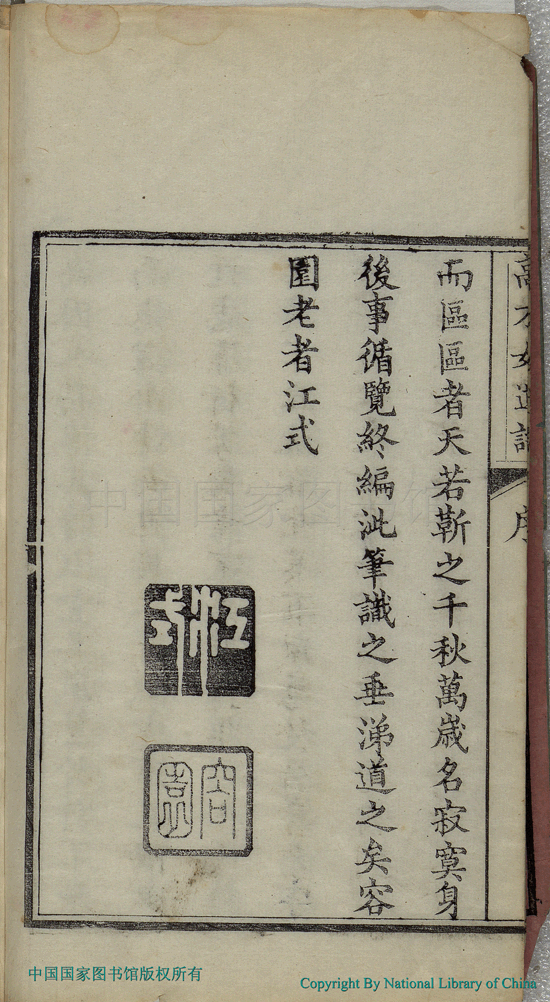 高才女遺詩 序
而區區者天若靳之千秋萬歲名寂寞身
後事循覽終編泚筆識之垂涕道之矣容
園老者江式
江式
容園
中国国家图书馆
中国国家图书馆版权所有
Copyright By National Library of China